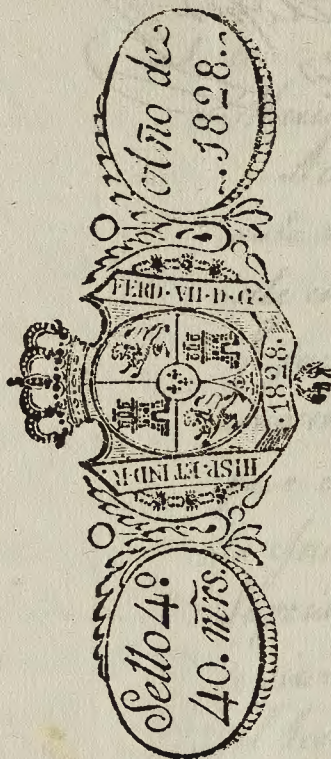 Sello 4º.
40. mr̃s.
HISP·ET IND·R
FERD·VII·D·G·
·1828·
Año de
..1828..